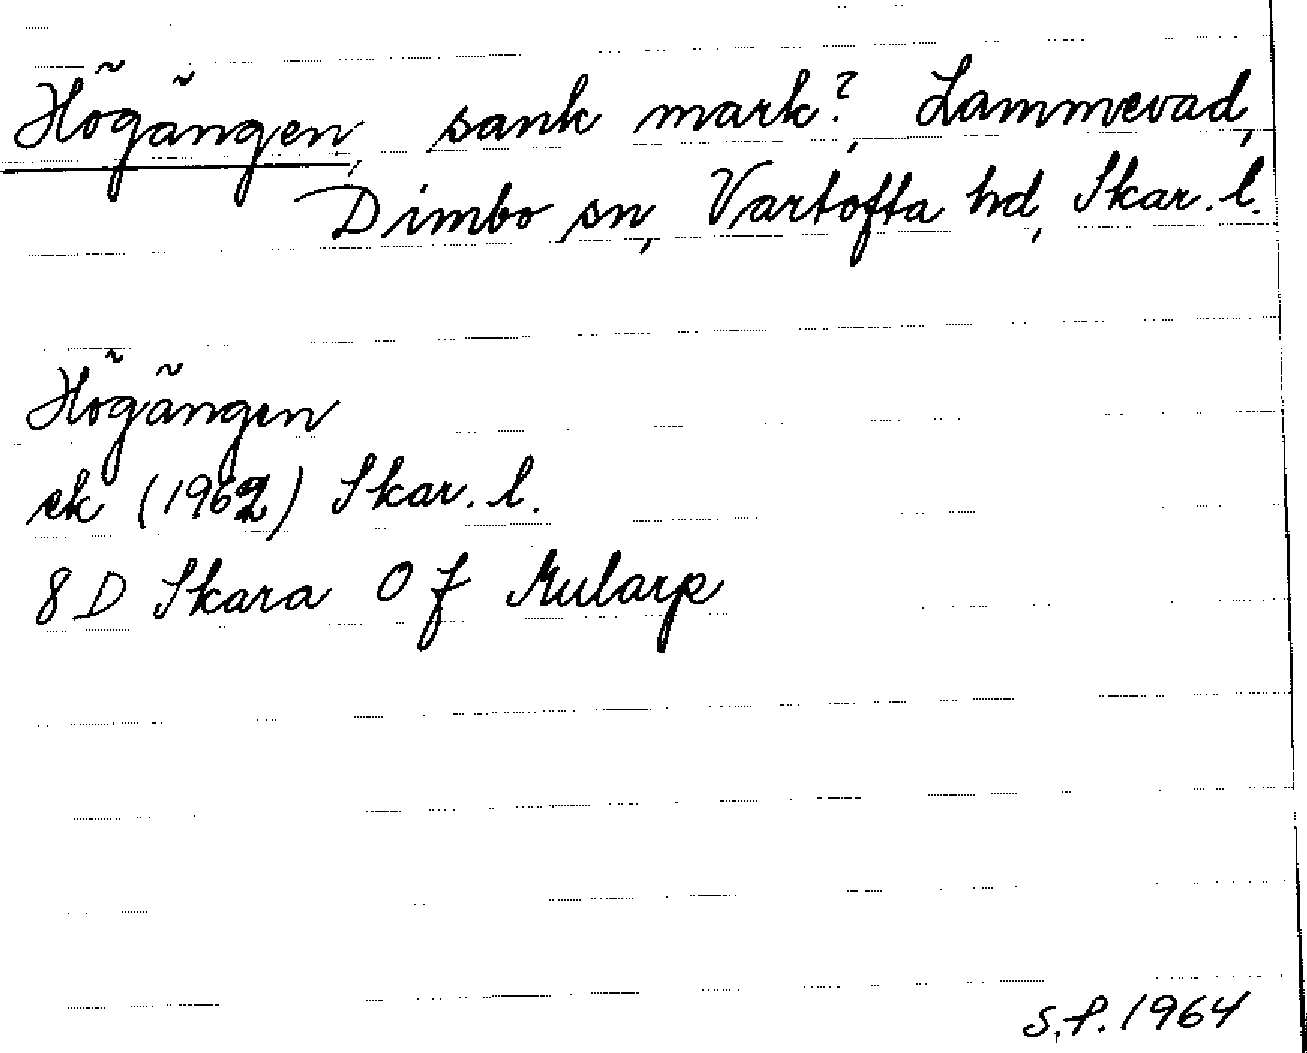 Högängen, sank mark?, Lammevad,
Dimbo sn, Vartofta hd, Skar. l.
Högängen
ek (1962) Skar. l.
8 D Skara 0 f Mularp
S.F. 1964